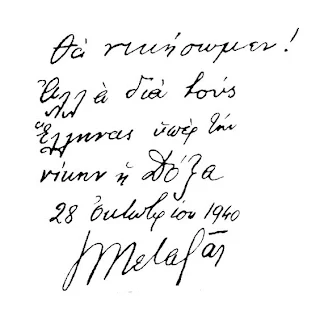 Θὰ νικήσωμεν!
Ἀλλὰ διὰ τούς
Ἕλληνας ὑπὲρ τὴν
νίκην ἡ Δόξα
28 Ὀκτωβρίου 1940
Ι Μεταξᾶς